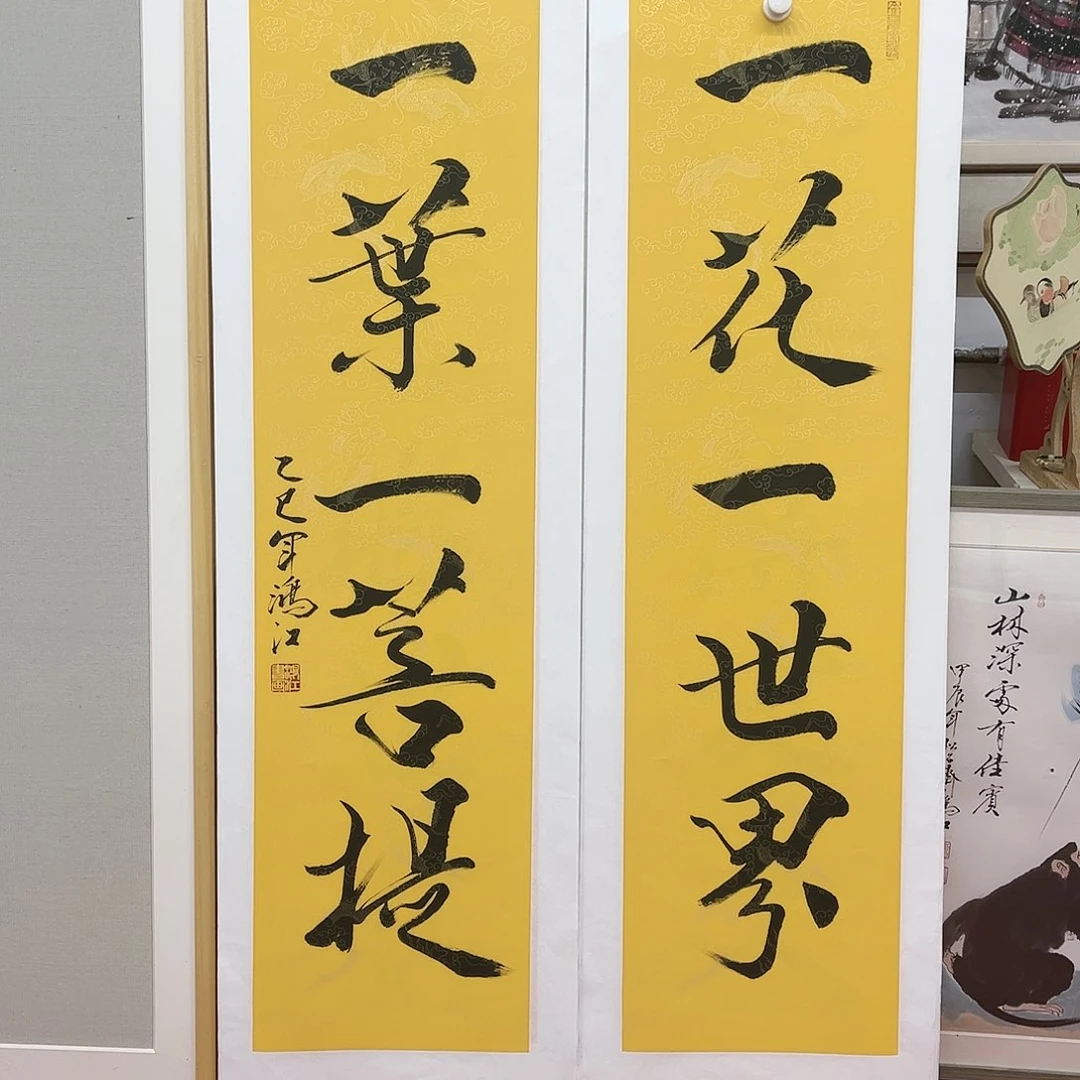 一花一世界
一葉一菩提
乙巳年鴻江
山林深處有佳賓
甲辰年松齋鴻江